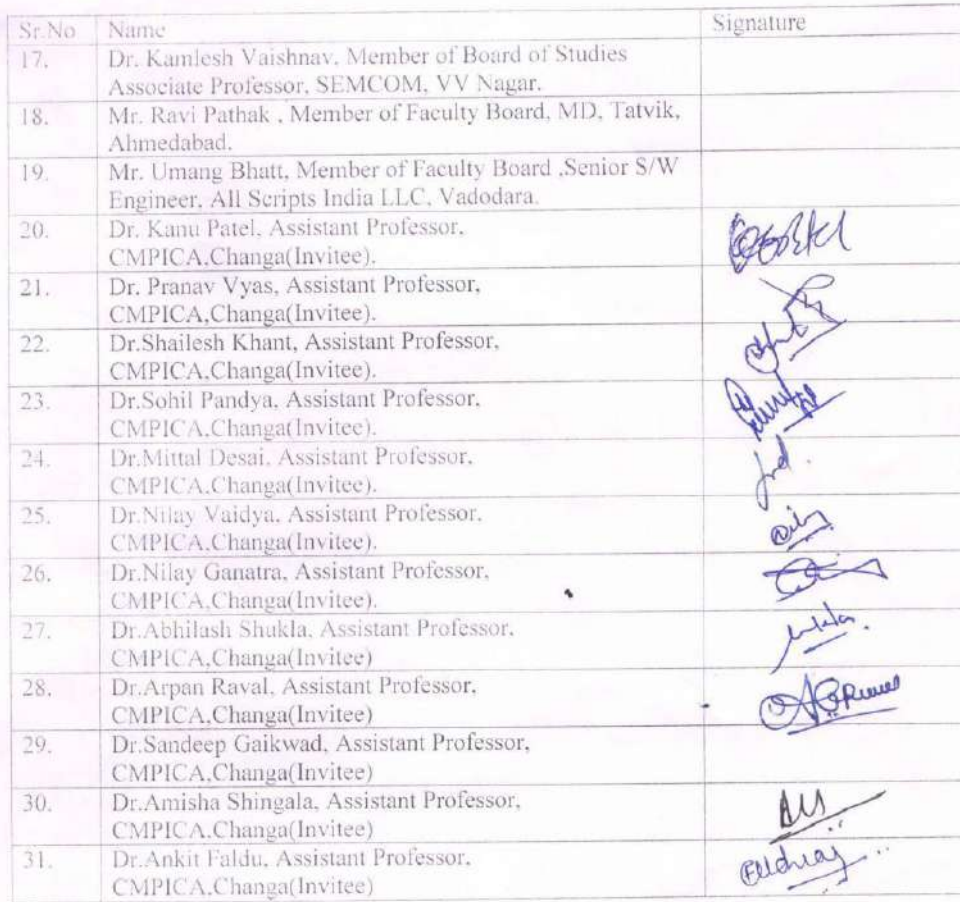 Sr.No Name Signature
17. Dr. Kamlesh Vaishnav, Member of Board of Studies
Associate Professor, SEMCOM, VV Nagar.
18. Mr. Ravi Pathak , Member of Faculty Board, MD, Tatvik,
Ahmedabad.
19. Mr. Umang Bhatt, Member of Faculty Board ,Senior S/W
Engineer, All Scripts India LLC, Vadodara.
20. Dr. Kanu Patel, Assistant Professor,
CMPICA,Changa(Invitee).
21. Dr. Pranav Vyas, Assistant Professor,
CMPICA,Changa(Invitee).
22. Dr.Shailesh Khant, Assistant Professor,
CMPICA,Changa(Invitee).
23. Dr.Sohil Pandya, Assistant Professor,
CMPICA,Changa(Invitee).
24. Dr.Mittal Desai, Assistant Professor,
CMPICA,Changa(Invitee).
25. Dr.Nilay Vaidya, Assistant Professor,
CMPICA,Changa(Invitee).
26. Dr.Nilay Ganatra, Assistant Professor,
CMPICA,Changa(Invitee).
27. Dr.Abhilash Shukla, Assistant Professor,
CMPICA,Changa(Invitee)
28. Dr.Arpan Raval, Assistant Professor,
CMPICA,Changa(Invitee)
29. Dr.Sandeep Gaikwad, Assistant Professor,
CMPICA,Changa(Invitee)
30. Dr.Amisha Shingala, Assistant Professor,
CMPICA,Changa(Invitee)
31. Dr.Ankit Faldu, Assistant Professor,
CMPICA,Changa(Invitee)